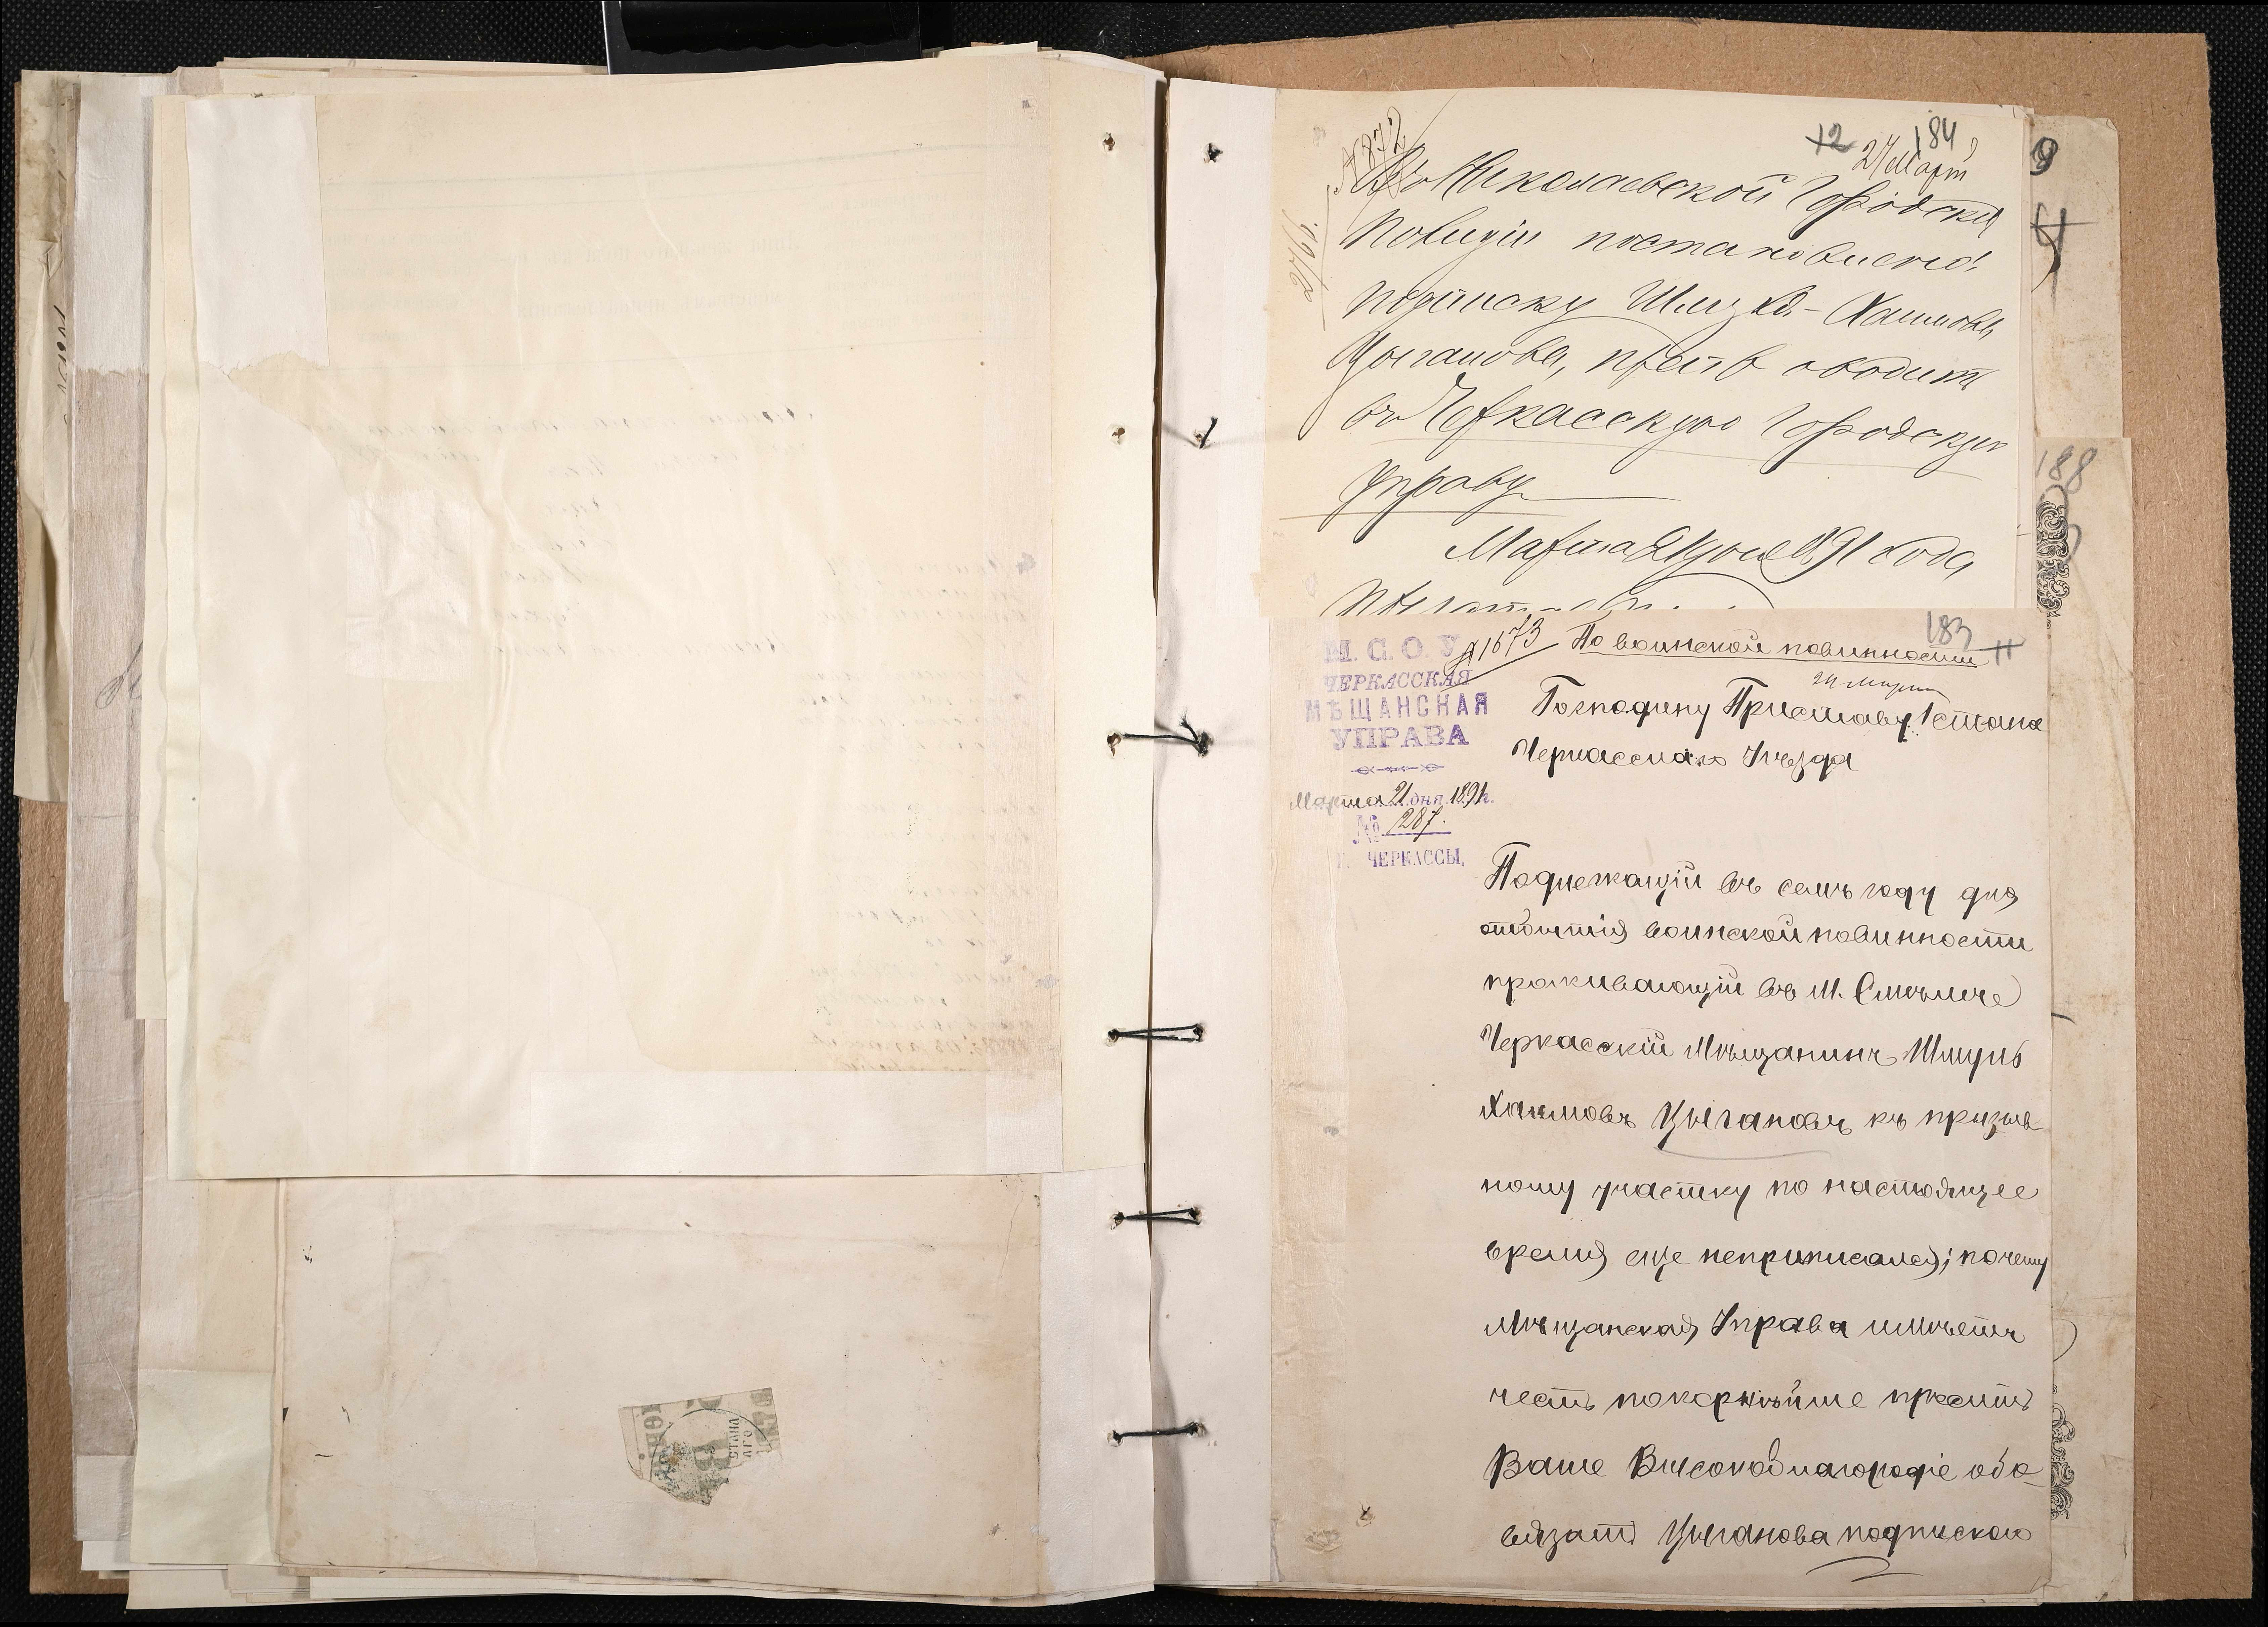 184
12
27 Март
№ 872
Въ Николаевской Городской
Полиціи постановлено:
подписку Шмуля Хаимова
Цыганова, препроводить
въ Черкасскую Городскую
Управу
Марта дня 1891 года
183
11
№ 1673
По воинской повинности
24 Марта
М. С. О. У
ЧЕРКАССКАЯ
МѢЩАНСКАЯ
УПРАВА
Марта 21 дня 1891 г.
№ 1287.
Г. ЧЕРКАССЫ.
Господину Приставу 1 стана
Черкасскаго Уѣзда
Подлежащій въ семъ году для
отбытія воинской повинности
проживающій въ М. Смѣлѣ
Черкасскій Мѣщанинъ Шмуль
Хаимовъ Цыгановъ къ призыв
ному участку по настоящее
время еще неприписался; почему
Мѣщанская Управа имѣетъ
честь покорнѣйше просить
Ваше Высокоблагородіе обя-
вязать Цыганова подпискою
188
9